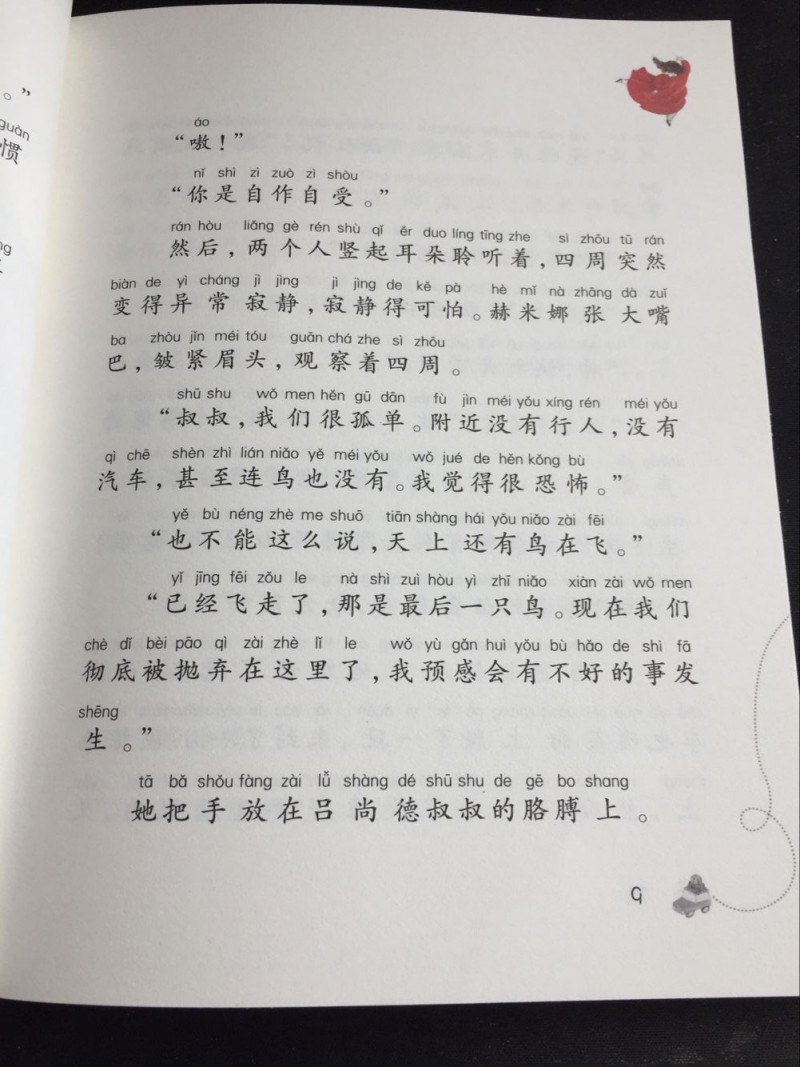 。”
guàn
惯
áo
“嗷！”
nǐ shì zì zuò zì shòu
“你是自作自受。”
rán hòu liǎng gè rén shù qǐ ěr duo líng tīng zhe sì zhōu tū rán
然后，两个人竖起耳朵聆听着，四周突然
biàn de yì cháng jì jìng jì jìng de kě pà hè mǐ nà zhāng dà zuǐ
变得异常寂静，寂静得可怕。赫米娜张大嘴
ba zhòu jǐn méi tóu guān chá zhe sì zhōu
巴，皱紧眉头，观察着四周。
shū shu wǒ men hěn gū dān fù jìn méi yǒu xíng rén méi yǒu
“叔叔，我们很孤单。附近没有行人，没有
qì chē shèn zhì lián niǎo yě méi yǒu wǒ jué de hěn kǒng bù
汽车，甚至连鸟也没有。我觉得很恐怖。”
yě bù néng zhè me shuō tiān shàng hái yǒu niǎo zài fēi
“也不能这么说，天上还有鸟在飞。”
yǐ jīng fēi zǒu le nà shì zuì hòu yì zhī niǎo xiàn zài wǒ men
“已经飞走了，那是最后一只鸟。现在我们
chè dǐ bèi pāo qì zài zhè lǐ le wǒ yù gǎn huì yǒu bù hǎo de shì fā
彻底被抛弃在这里了，我预感会有不好的事发
shēng
生。”
tā bǎ shǒu fàng zài lǚ shàng dé shū shu de gē bo shang
她把手放在吕尚德叔叔的胳膊上。
9